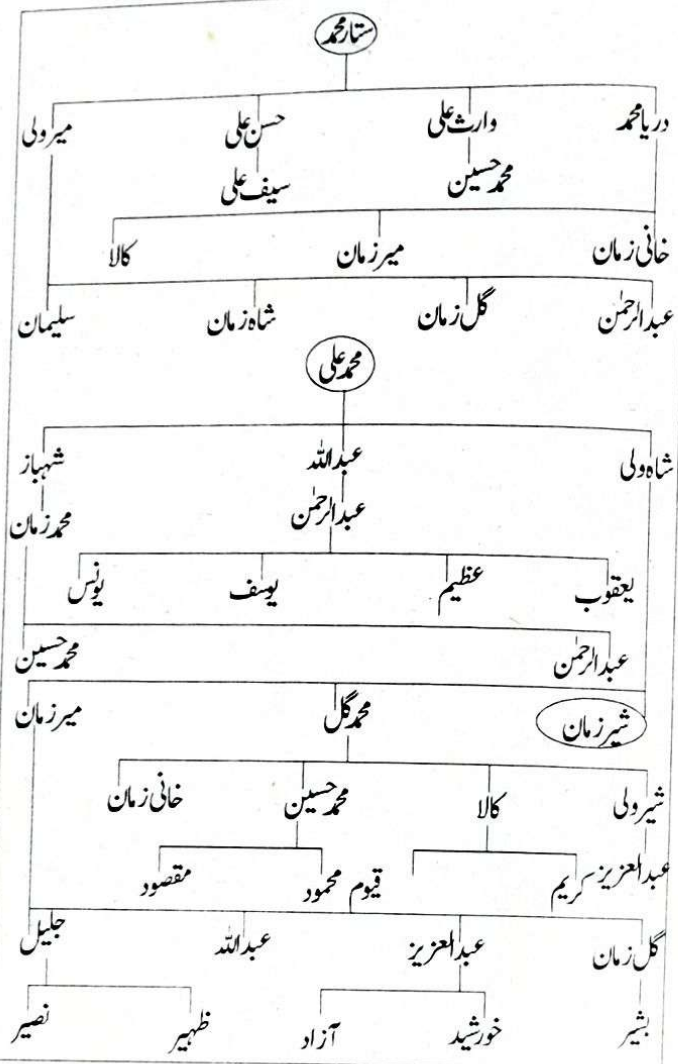 ستار محمد
دریا محمد وارث علی حسن علی میر ولی
محمد حسین سیف علی
خانی زمان میر زمان کالا
عبدالرحمٰن گل زمان شاہ زمان سلیمان
محمد علی
شاہ ولی عبداللہ شہباز
عبدالرحمٰن محمد زمان
یعقوب عظیم یوسف یونس
عبدالرحمٰن محمد حسین
شیر زمان محمد گل میر زمان
شیر ولی کالا محمد حسین خانی زمان
عبدالعزیز کریم قیوم محمود مقصود
گل زمان عبدالعزیز عبداللہ جلیل
بشیر خورشید آزاد ظہیر نصیر